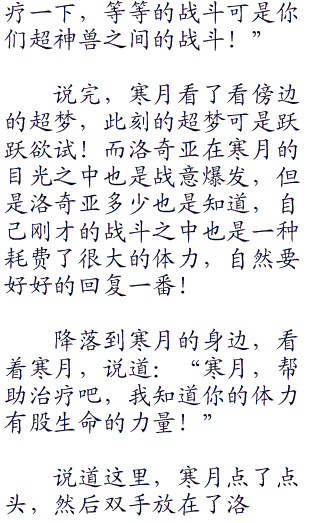 疗一下，等等的战斗可是你
们超神兽之间的战斗！”
说完，寒月看了看傍边
的超梦，此刻的超梦可是跃
跃欲试！而洛奇亚在寒月的
目光之中也是战意爆发，但
是洛奇亚多少也是知道，自
己刚才的战斗之中也是一种
耗费了很大的体力，自然要
好好的回复一番！
降落到寒月的身边，看
着寒月，说道：“寒月，帮
助治疗吧，我知道你的体力
有股生命的力量！”
说道这里，寒月点了点
头，然后双手放在了洛